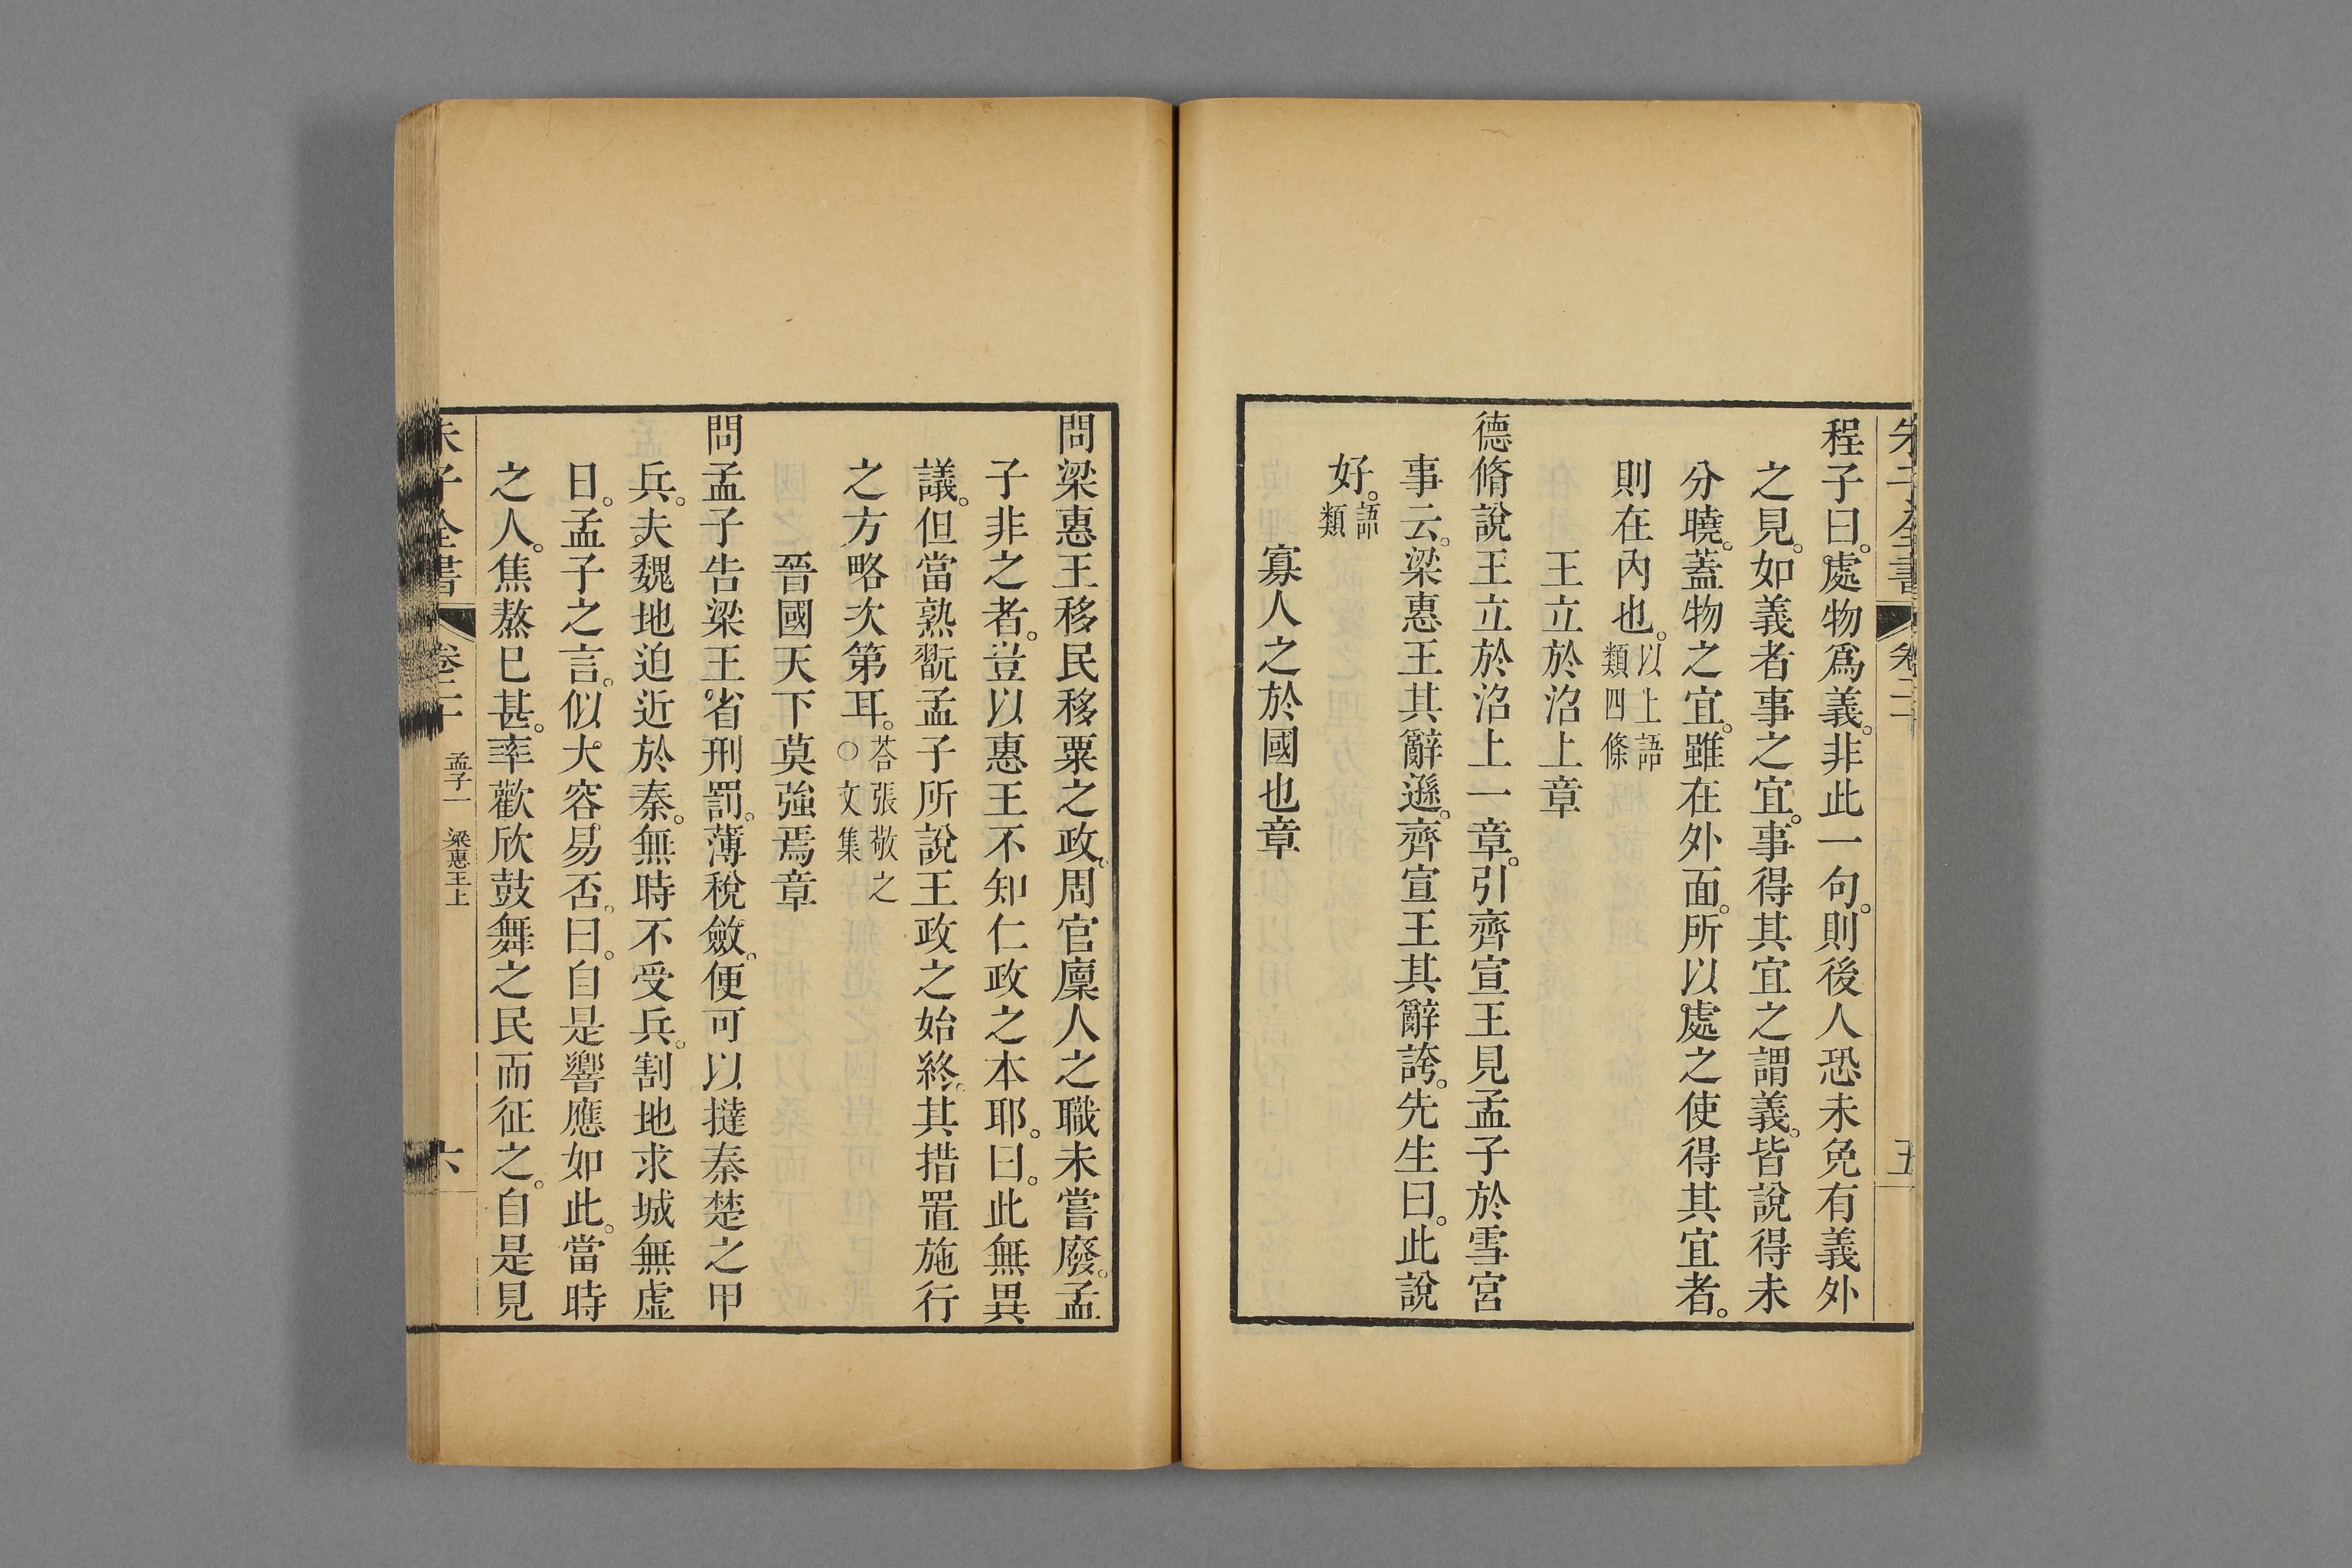 程子曰處物爲義非此一句則後人恐未免有義外
之見如義者事之宜事得其宜之謂義皆說得未
分曉蓋物之宜雖在外面所以處之使得其宜者
則在內也以上語類四條
王立於沼上章
德脩說王立於沼上一章引齊宣王見孟子於雪宮
事云梁惠王其辭遜齊宣王其辭誇先生曰此說
好語類
寡人之於國也章
問梁惠王移民移粟之政周官廩人之職未嘗廢孟
子非之者豈以惠王不知仁政之本耶曰此無異
議但當熟翫孟子所說王政之始終其措置施行
之方略次第耳荅張敬之○文集
晉國天下莫強焉章
問孟子告梁王省刑罰薄稅斂便可以撻秦楚之甲
兵夫魏地迫近於秦無時不受兵割地求城無虛
日孟子之言似大容易否曰自是響應如此當時
之人焦熬已甚率歡欣鼓舞之民而征之自是見
朱子全書 卷二十 孟子一 梁惠王上 六